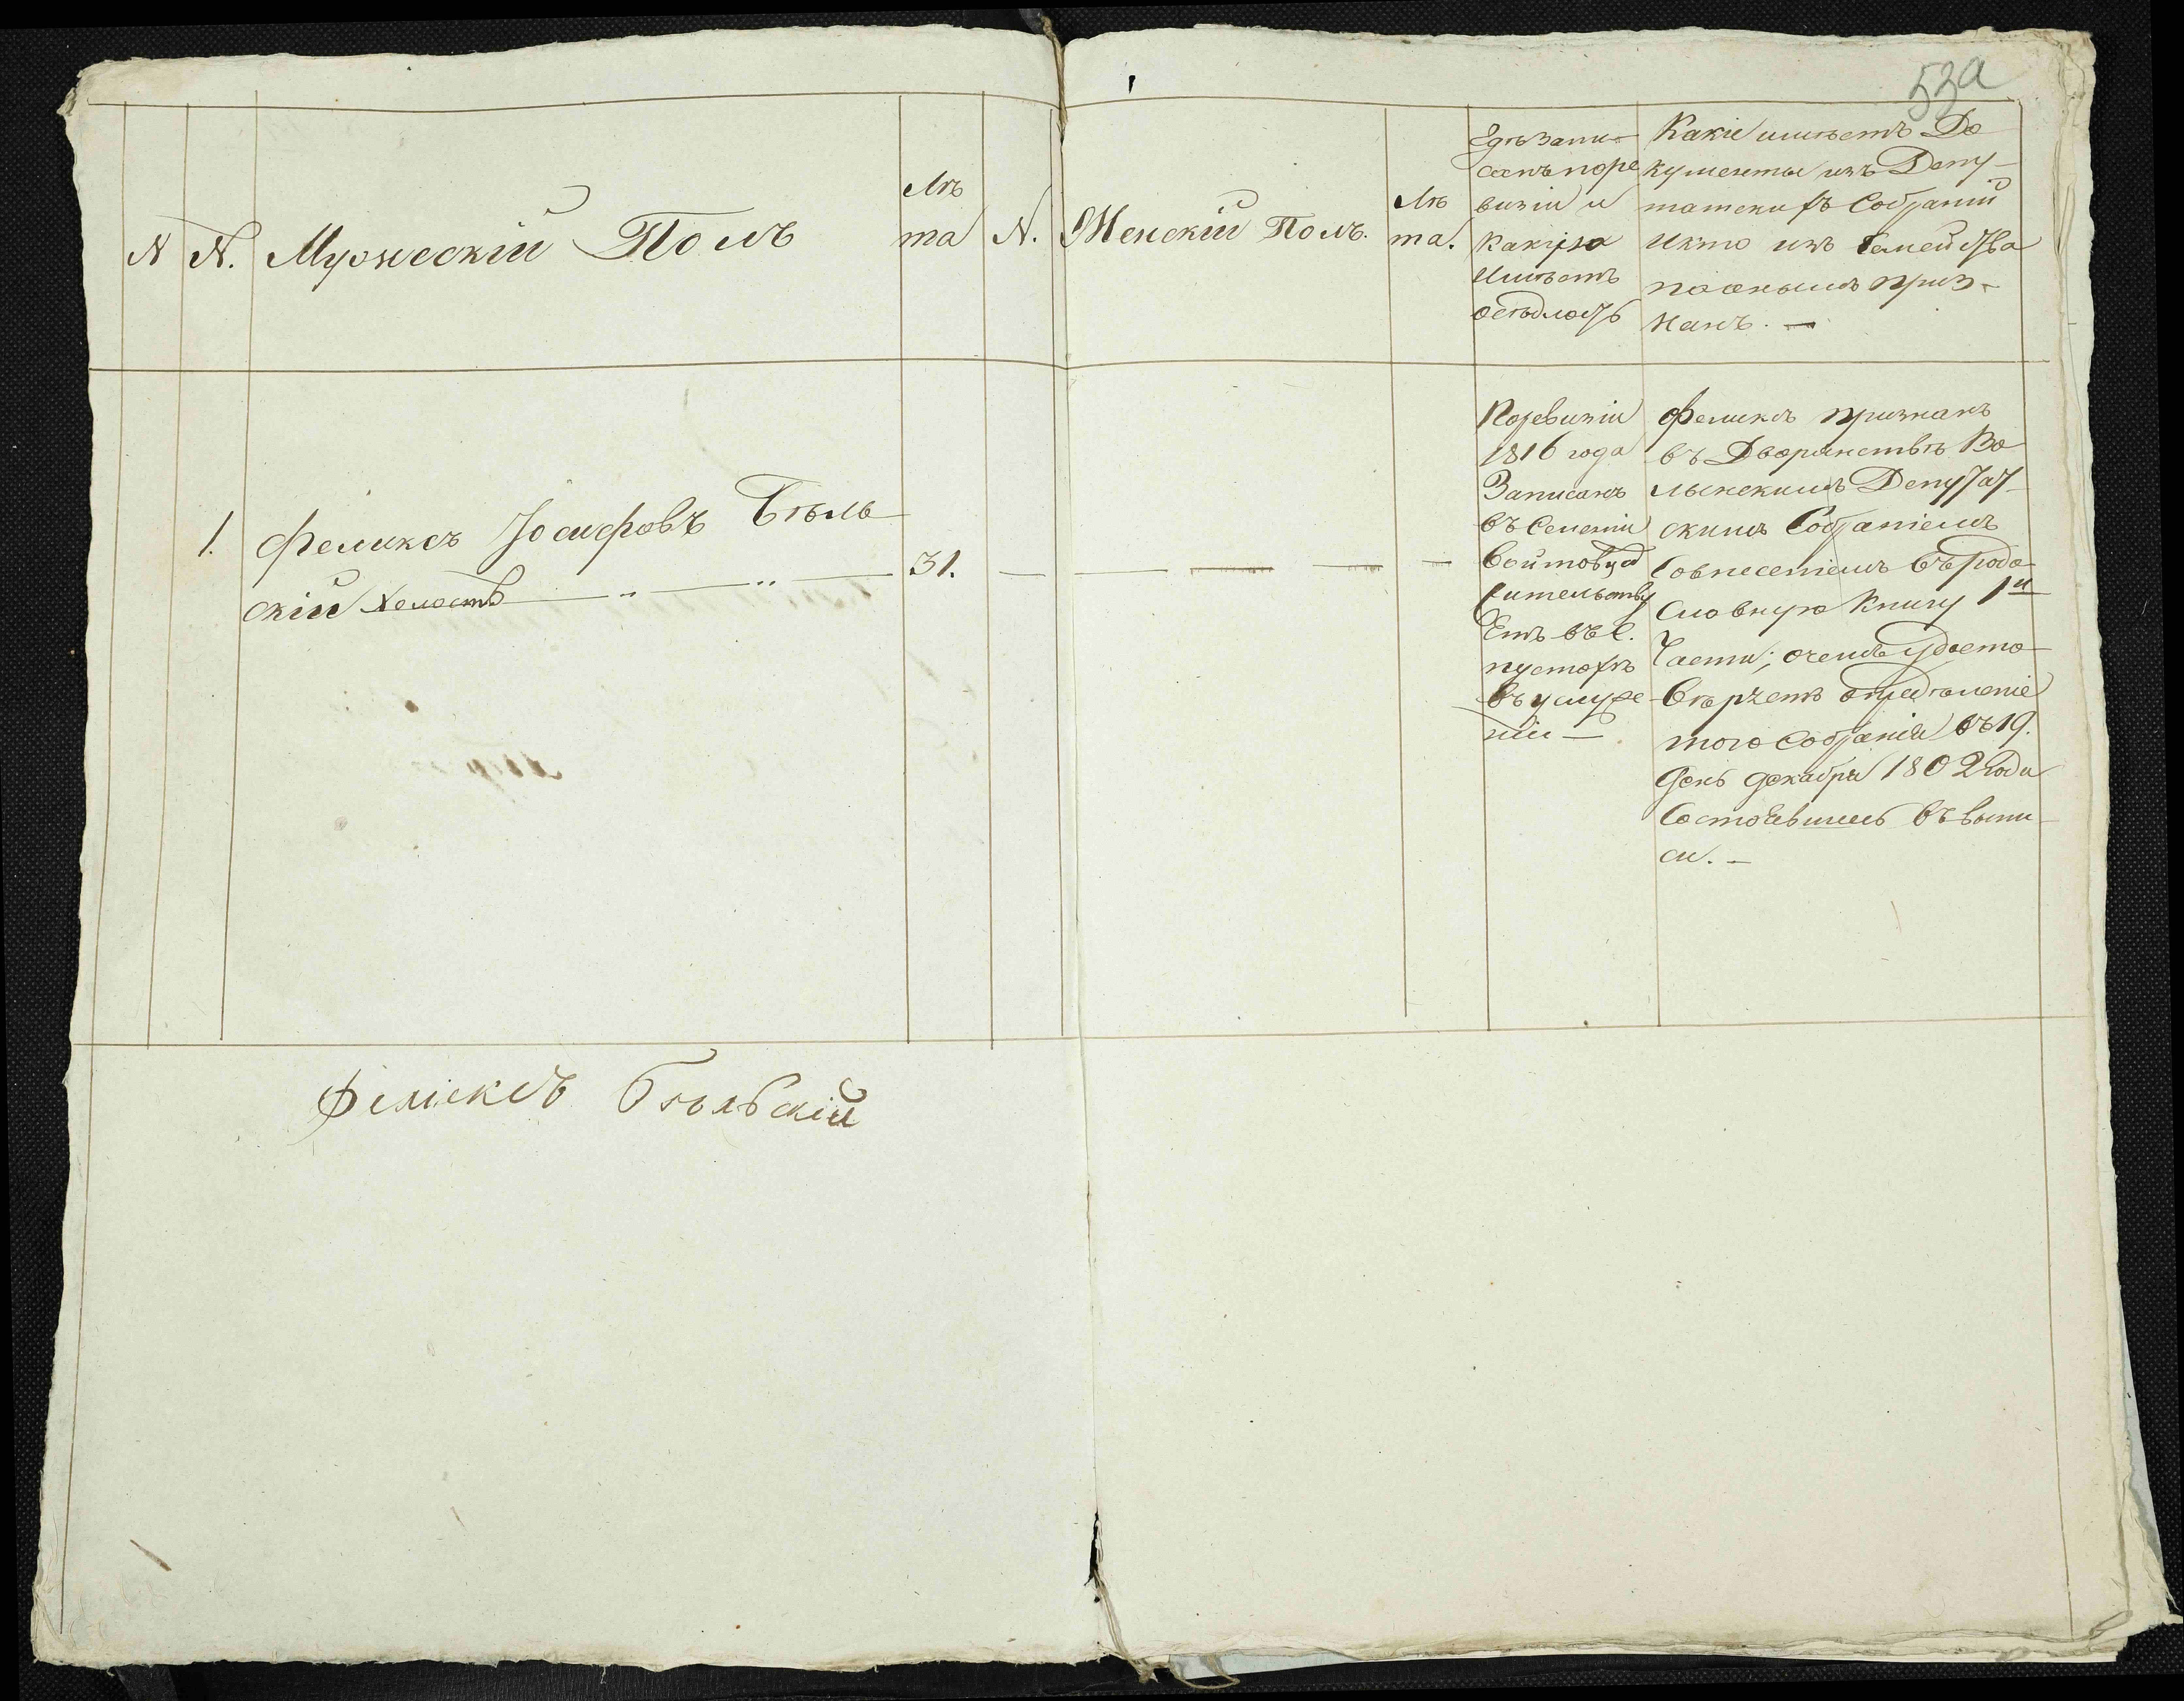 53а
N
N.
Мужескій Полъ
Лѣ
та
N.
Женскій Полъ.
Лѣ
та.
Гдѣ запи-
санъ по ре
визіи и
какую
Имѣетъ
осѣдлость
Какіе имѣетъ До
кументы изъ Депу-
татскихъ Собраній
И кто изъ Семейства
по онымъ приз-
нанъ. —
1.
Феликсъ Іосифовъ Бѣль
скій Холостъ
31.
По ревизіи
1816 года
Записанъ
въ Селеніи
Войтовцах
Жительству
Етъ въ С.
пустохѣ
въ услуже
ніи —
Феликсъ признанъ
въ Дворянствѣ Во
лынскимъ Депутат-
скимъ Собраніемъ
Совнесеніемъ въ родо
словную Книгу 1й
Части; очемъ удосто-
вѣряетъ опредѣленіе
того Собранія въ 19.
день декабря 1802 года
Состоявшеесь въ выпи
си. —
Феліксъ Бѣльскій